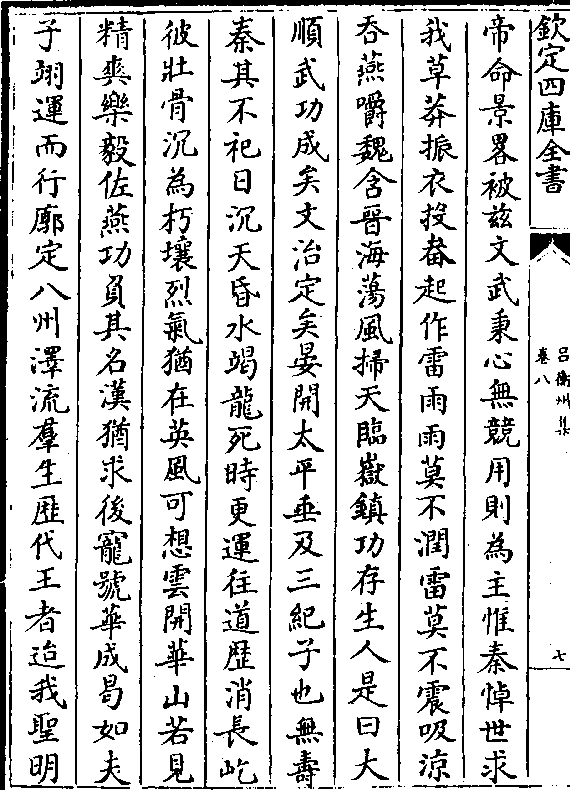 欽定四庫全書
呂衡州集
卷八
七
帝命景畧被茲文武秉心無競用則為主惟秦悼世求
我草莽振衣投畚起作雷雨雨莫不潤雷莫不震吸涼
吞燕嚼魏含晉海蕩風掃天臨嶽鎮功存生人是曰大
順武功成矣文治定矣晏開太平垂及三紀子也無壽
秦其不祀日沉天昏水竭龍死時更運往道歷消長屹
彼壯骨沉為朽壤烈氣猶在英風可想雲開華山若見
精爽樂毅佐燕功負其名漢猶求後寵號華成曷如夫
子翊運而行廓定八州澤流羣生歴代王者迨我聖明